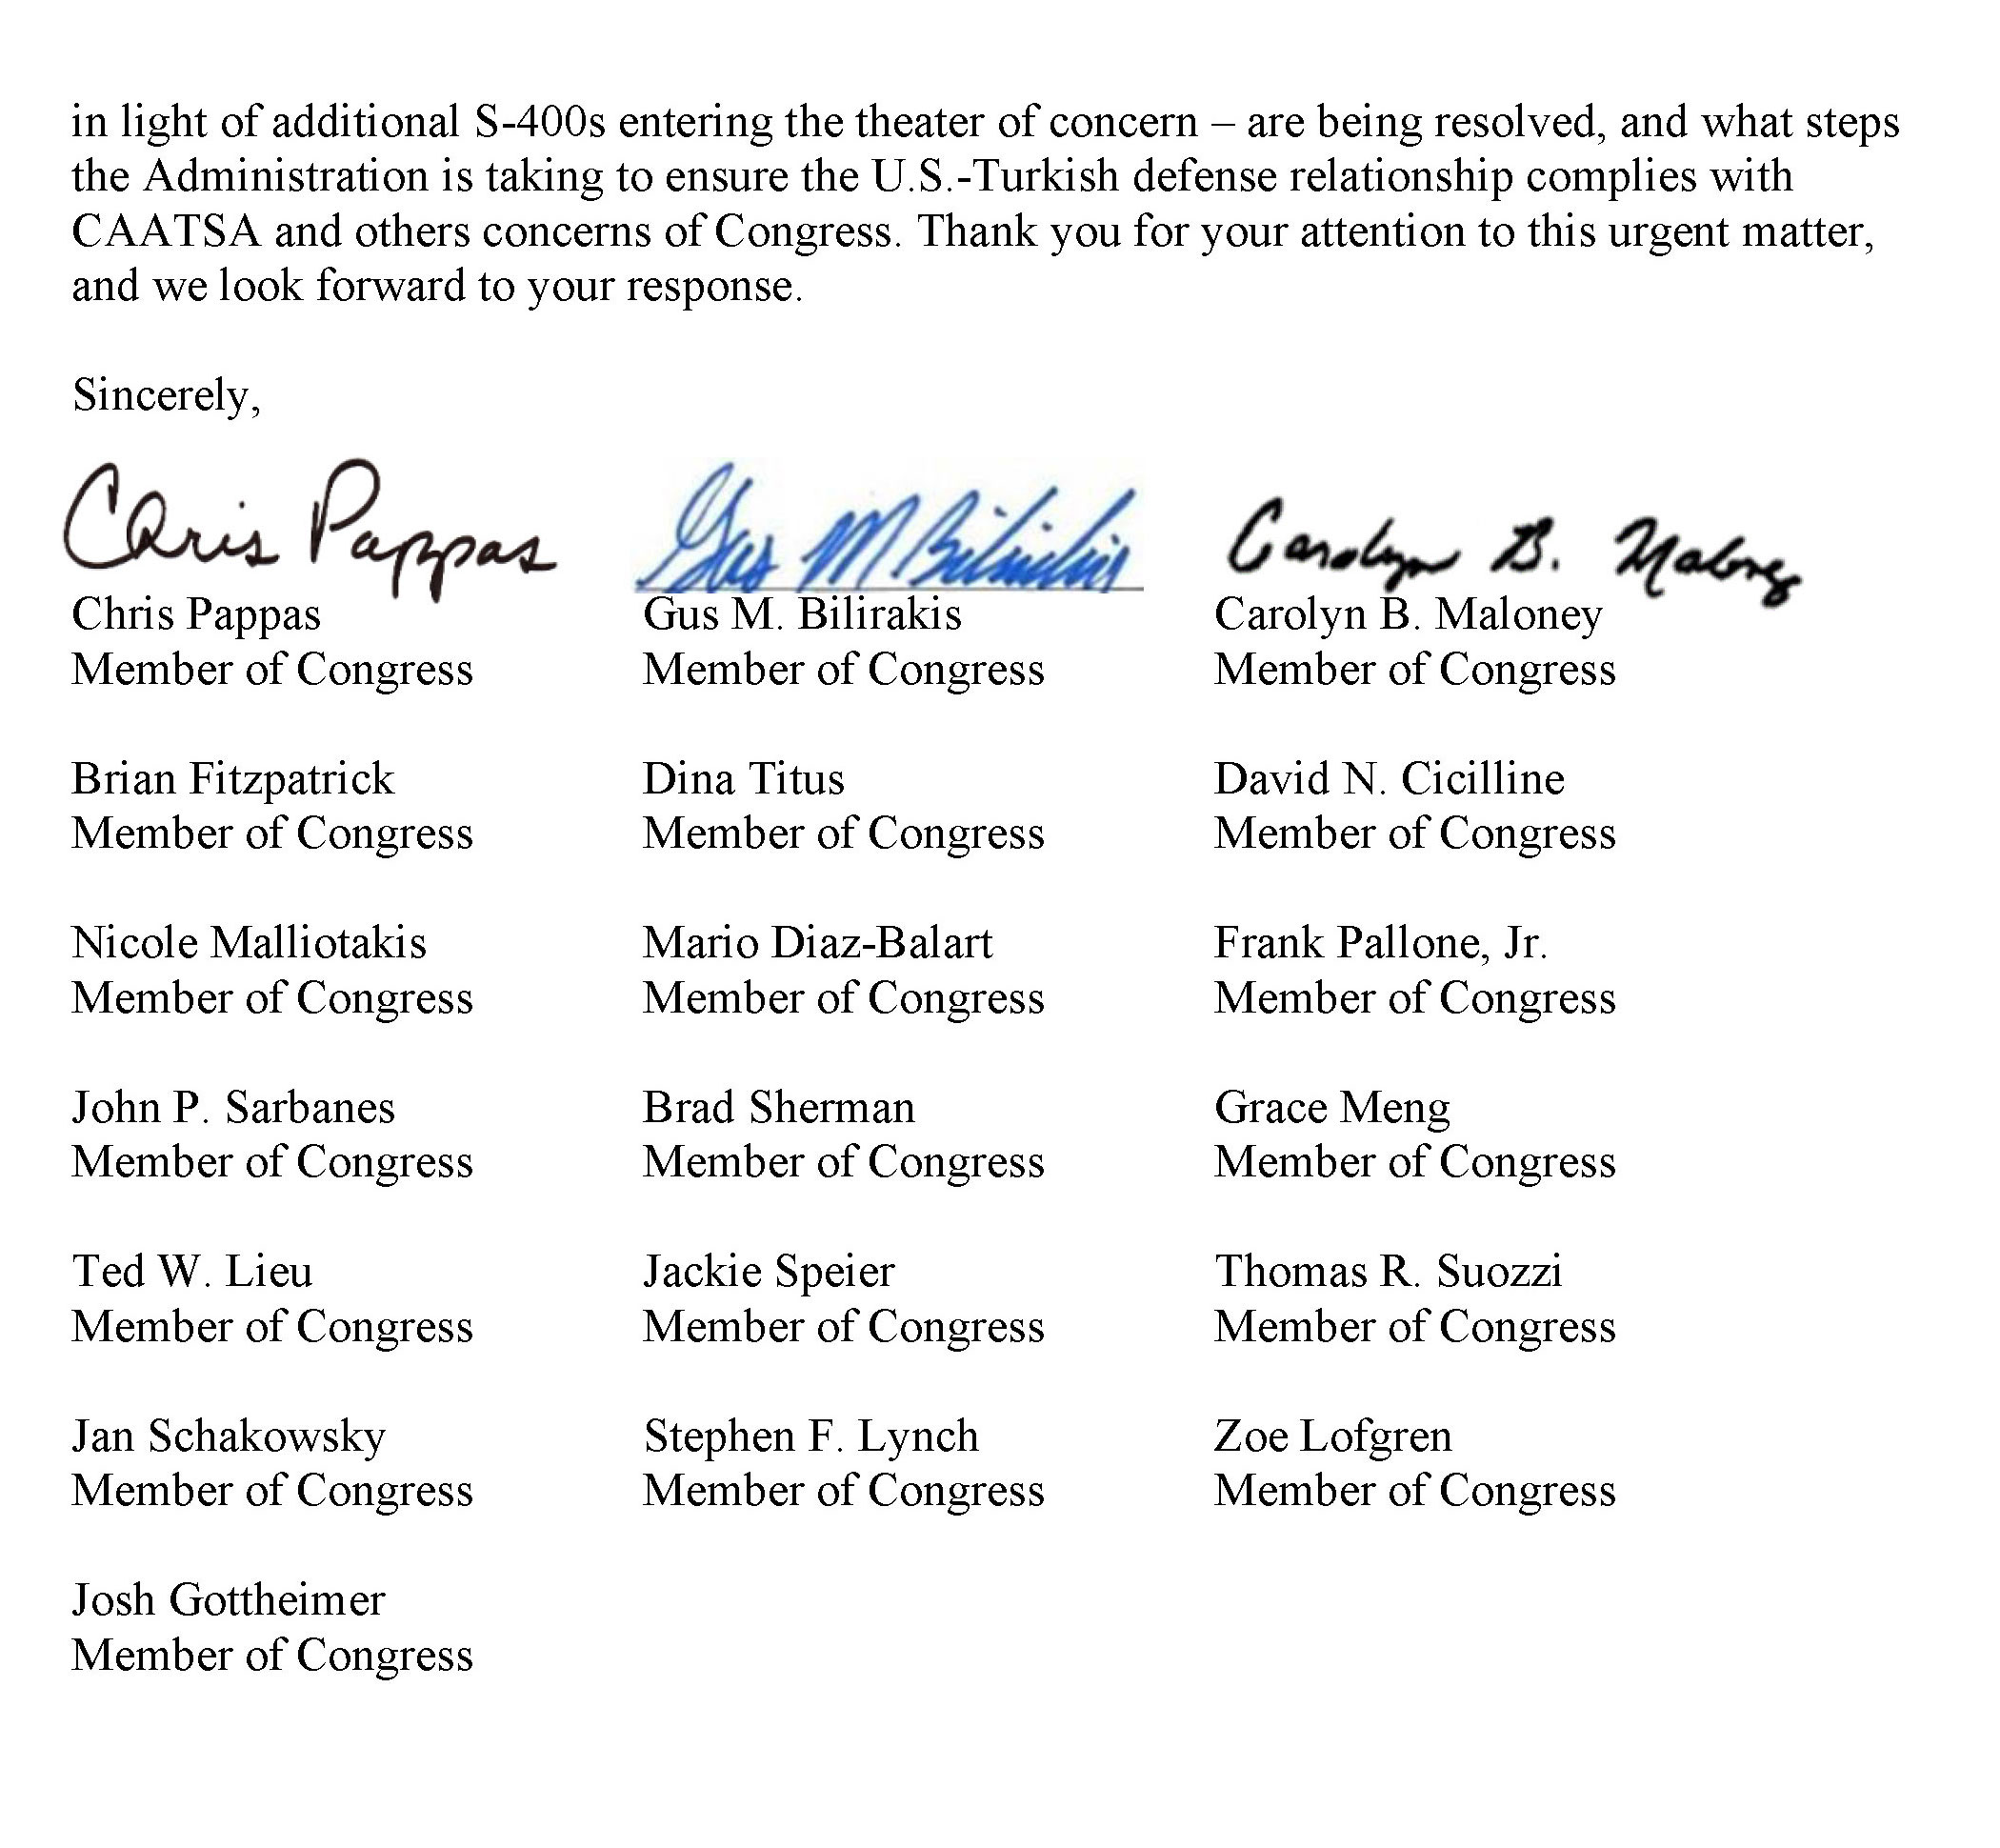 in light of additional S-400s entering the theater of concern – are being resolved, and what steps
the Administration is taking to ensure the U.S.-Turkish defense relationship complies with
CAATSA and others concerns of Congress. Thank you for your attention to this urgent matter,
and we look forward to your response.
Sincerely,
Chris Pappas Gus M Bilirakis Carolyn B. Maloney
Chris Pappas Gus M. Bilirakis Carolyn B. Maloney
Member of Congress Member of Congress Member of Congress
Brian Fitzpatrick Dina Titus David N. Cicilline
Member of Congress Member of Congress Member of Congress
Nicole Malliotakis Mario Diaz-Balart Frank Pallone, Jr.
Member of Congress Member of Congress Member of Congress
John P. Sarbanes Brad Sherman Grace Meng
Member of Congress Member of Congress Member of Congress
Ted W. Lieu Jackie Speier Thomas R. Suozzi
Member of Congress Member of Congress Member of Congress
Jan Schakowsky Stephen F. Lynch Zoe Lofgren
Member of Congress Member of Congress Member of Congress
Josh Gottheimer
Member of Congress